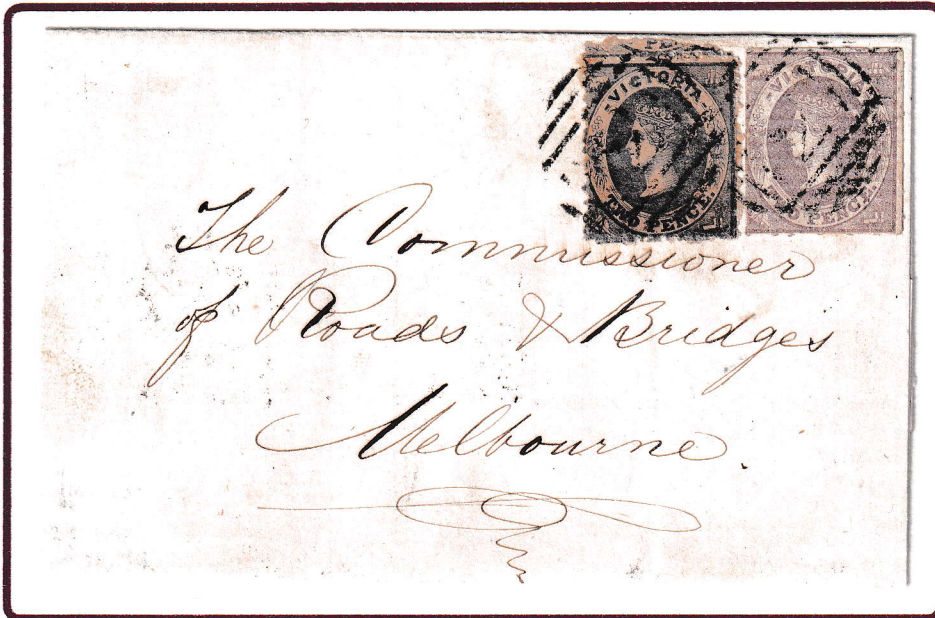 VICTORIA
TWO PENCE
VICTORIA
PENCE
The Commissioner
of Roads & Bridges
Melbourne.